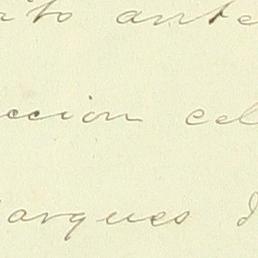 ito ante
ccion cel
arques d